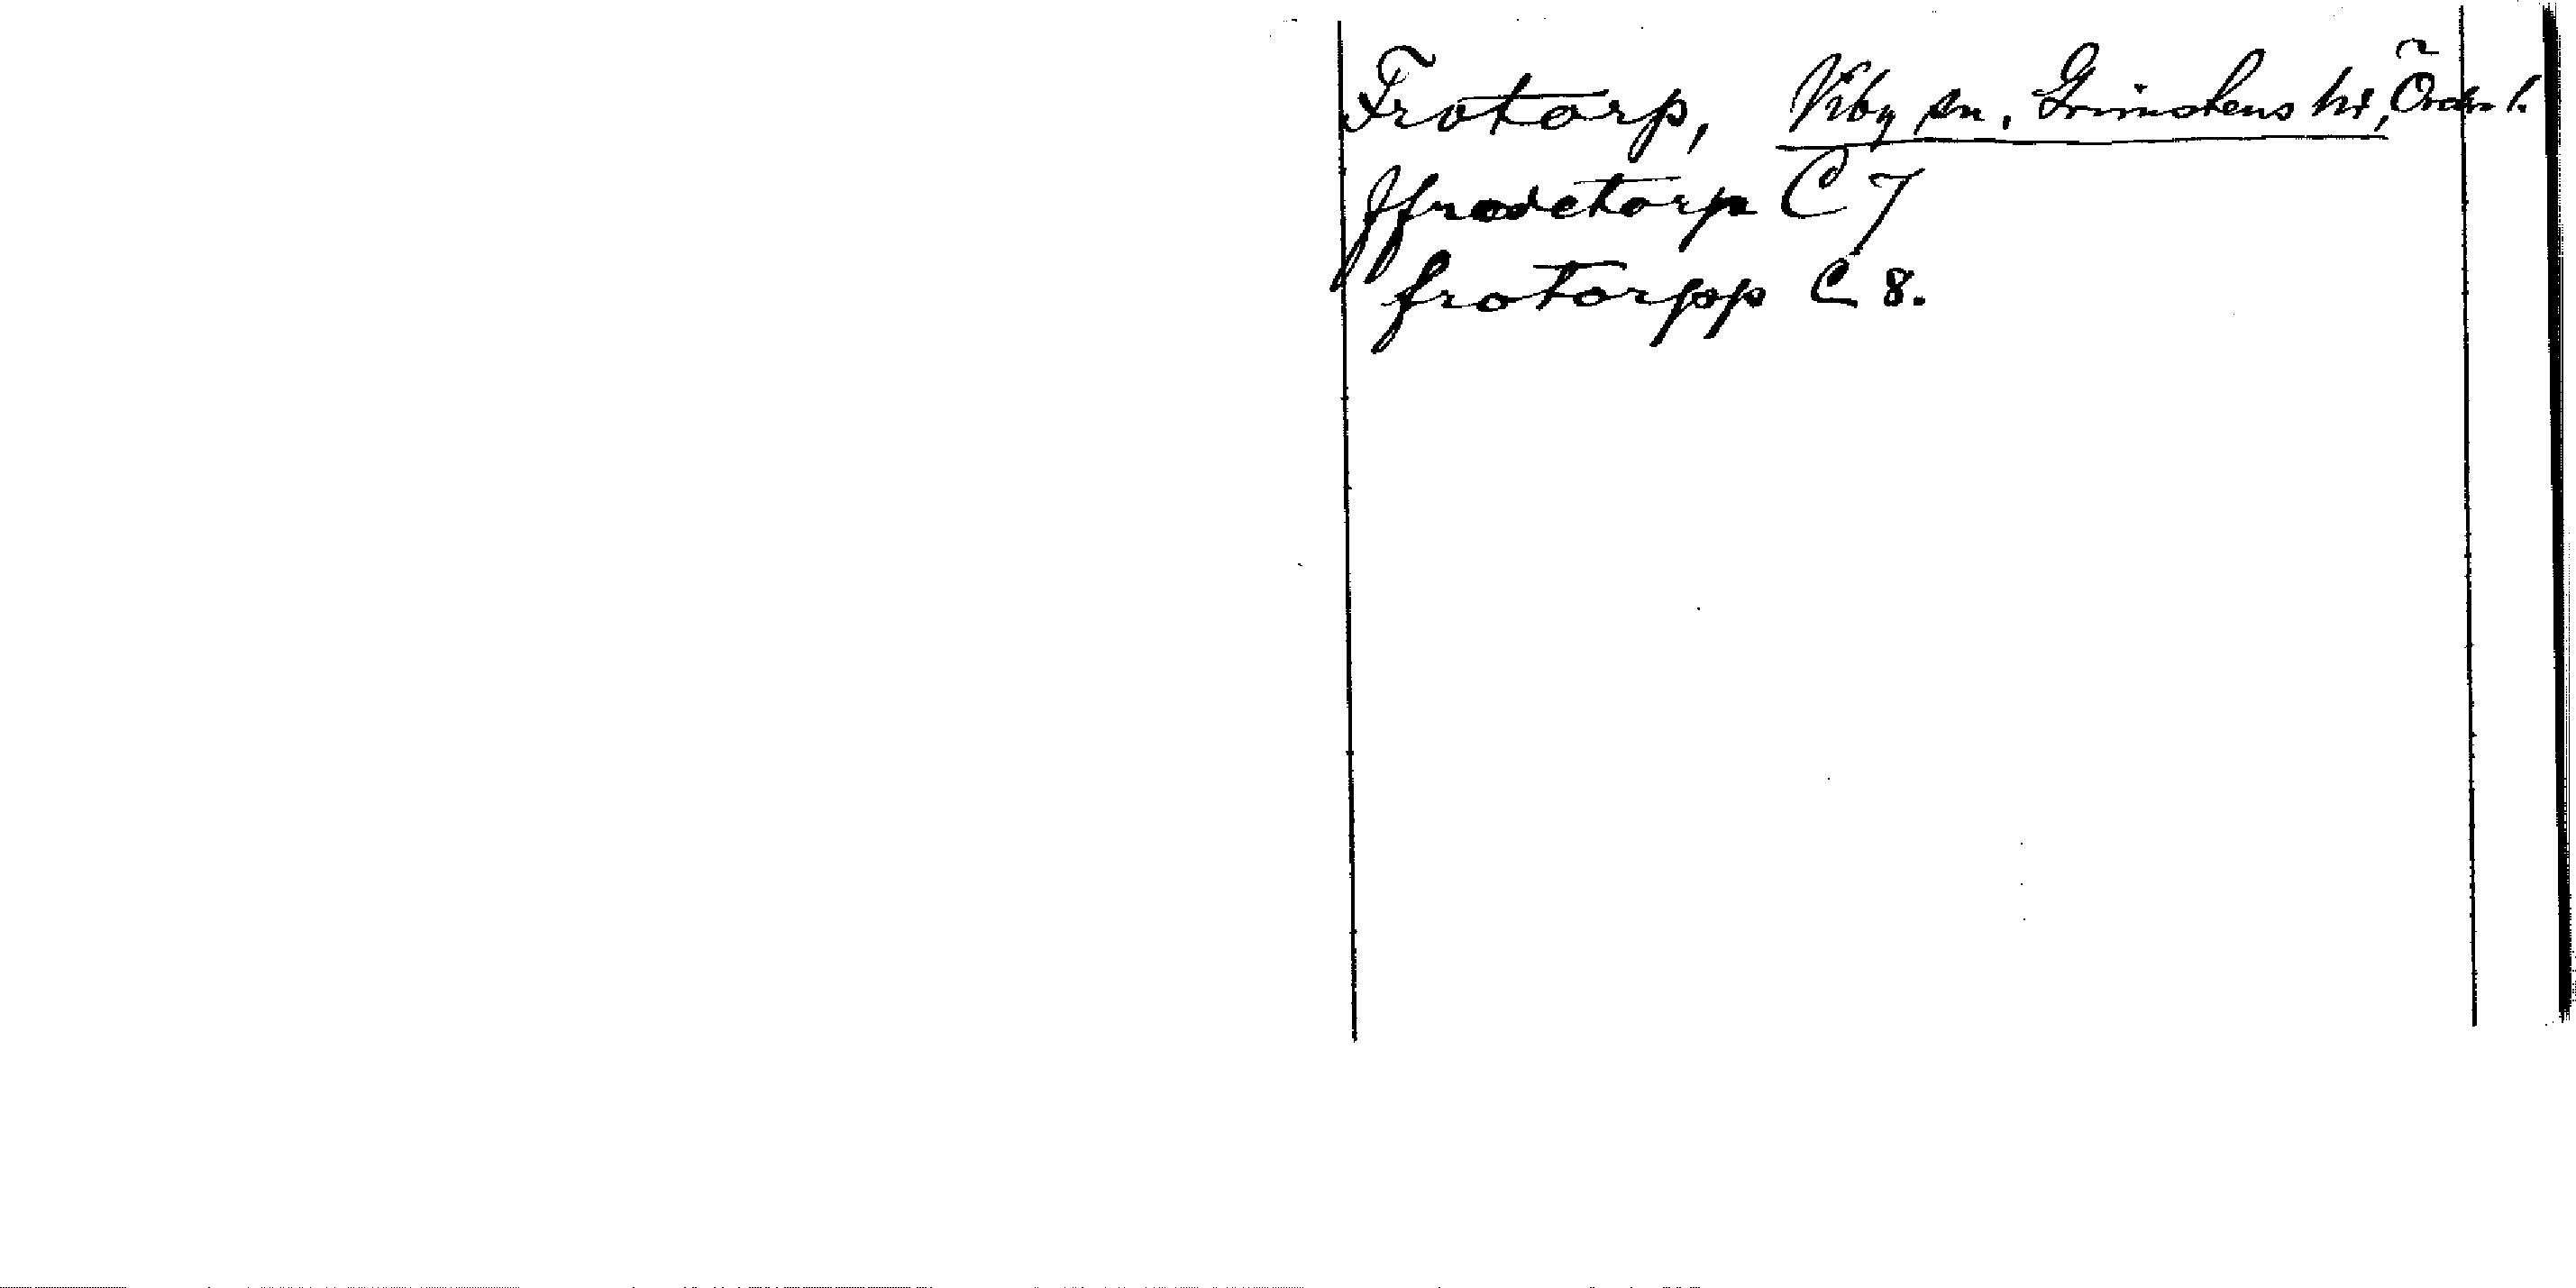 Frotorp, Viby sn. Grimstens hd, Örebro l.
ffrodetorp C 7
frotorpp C 8.